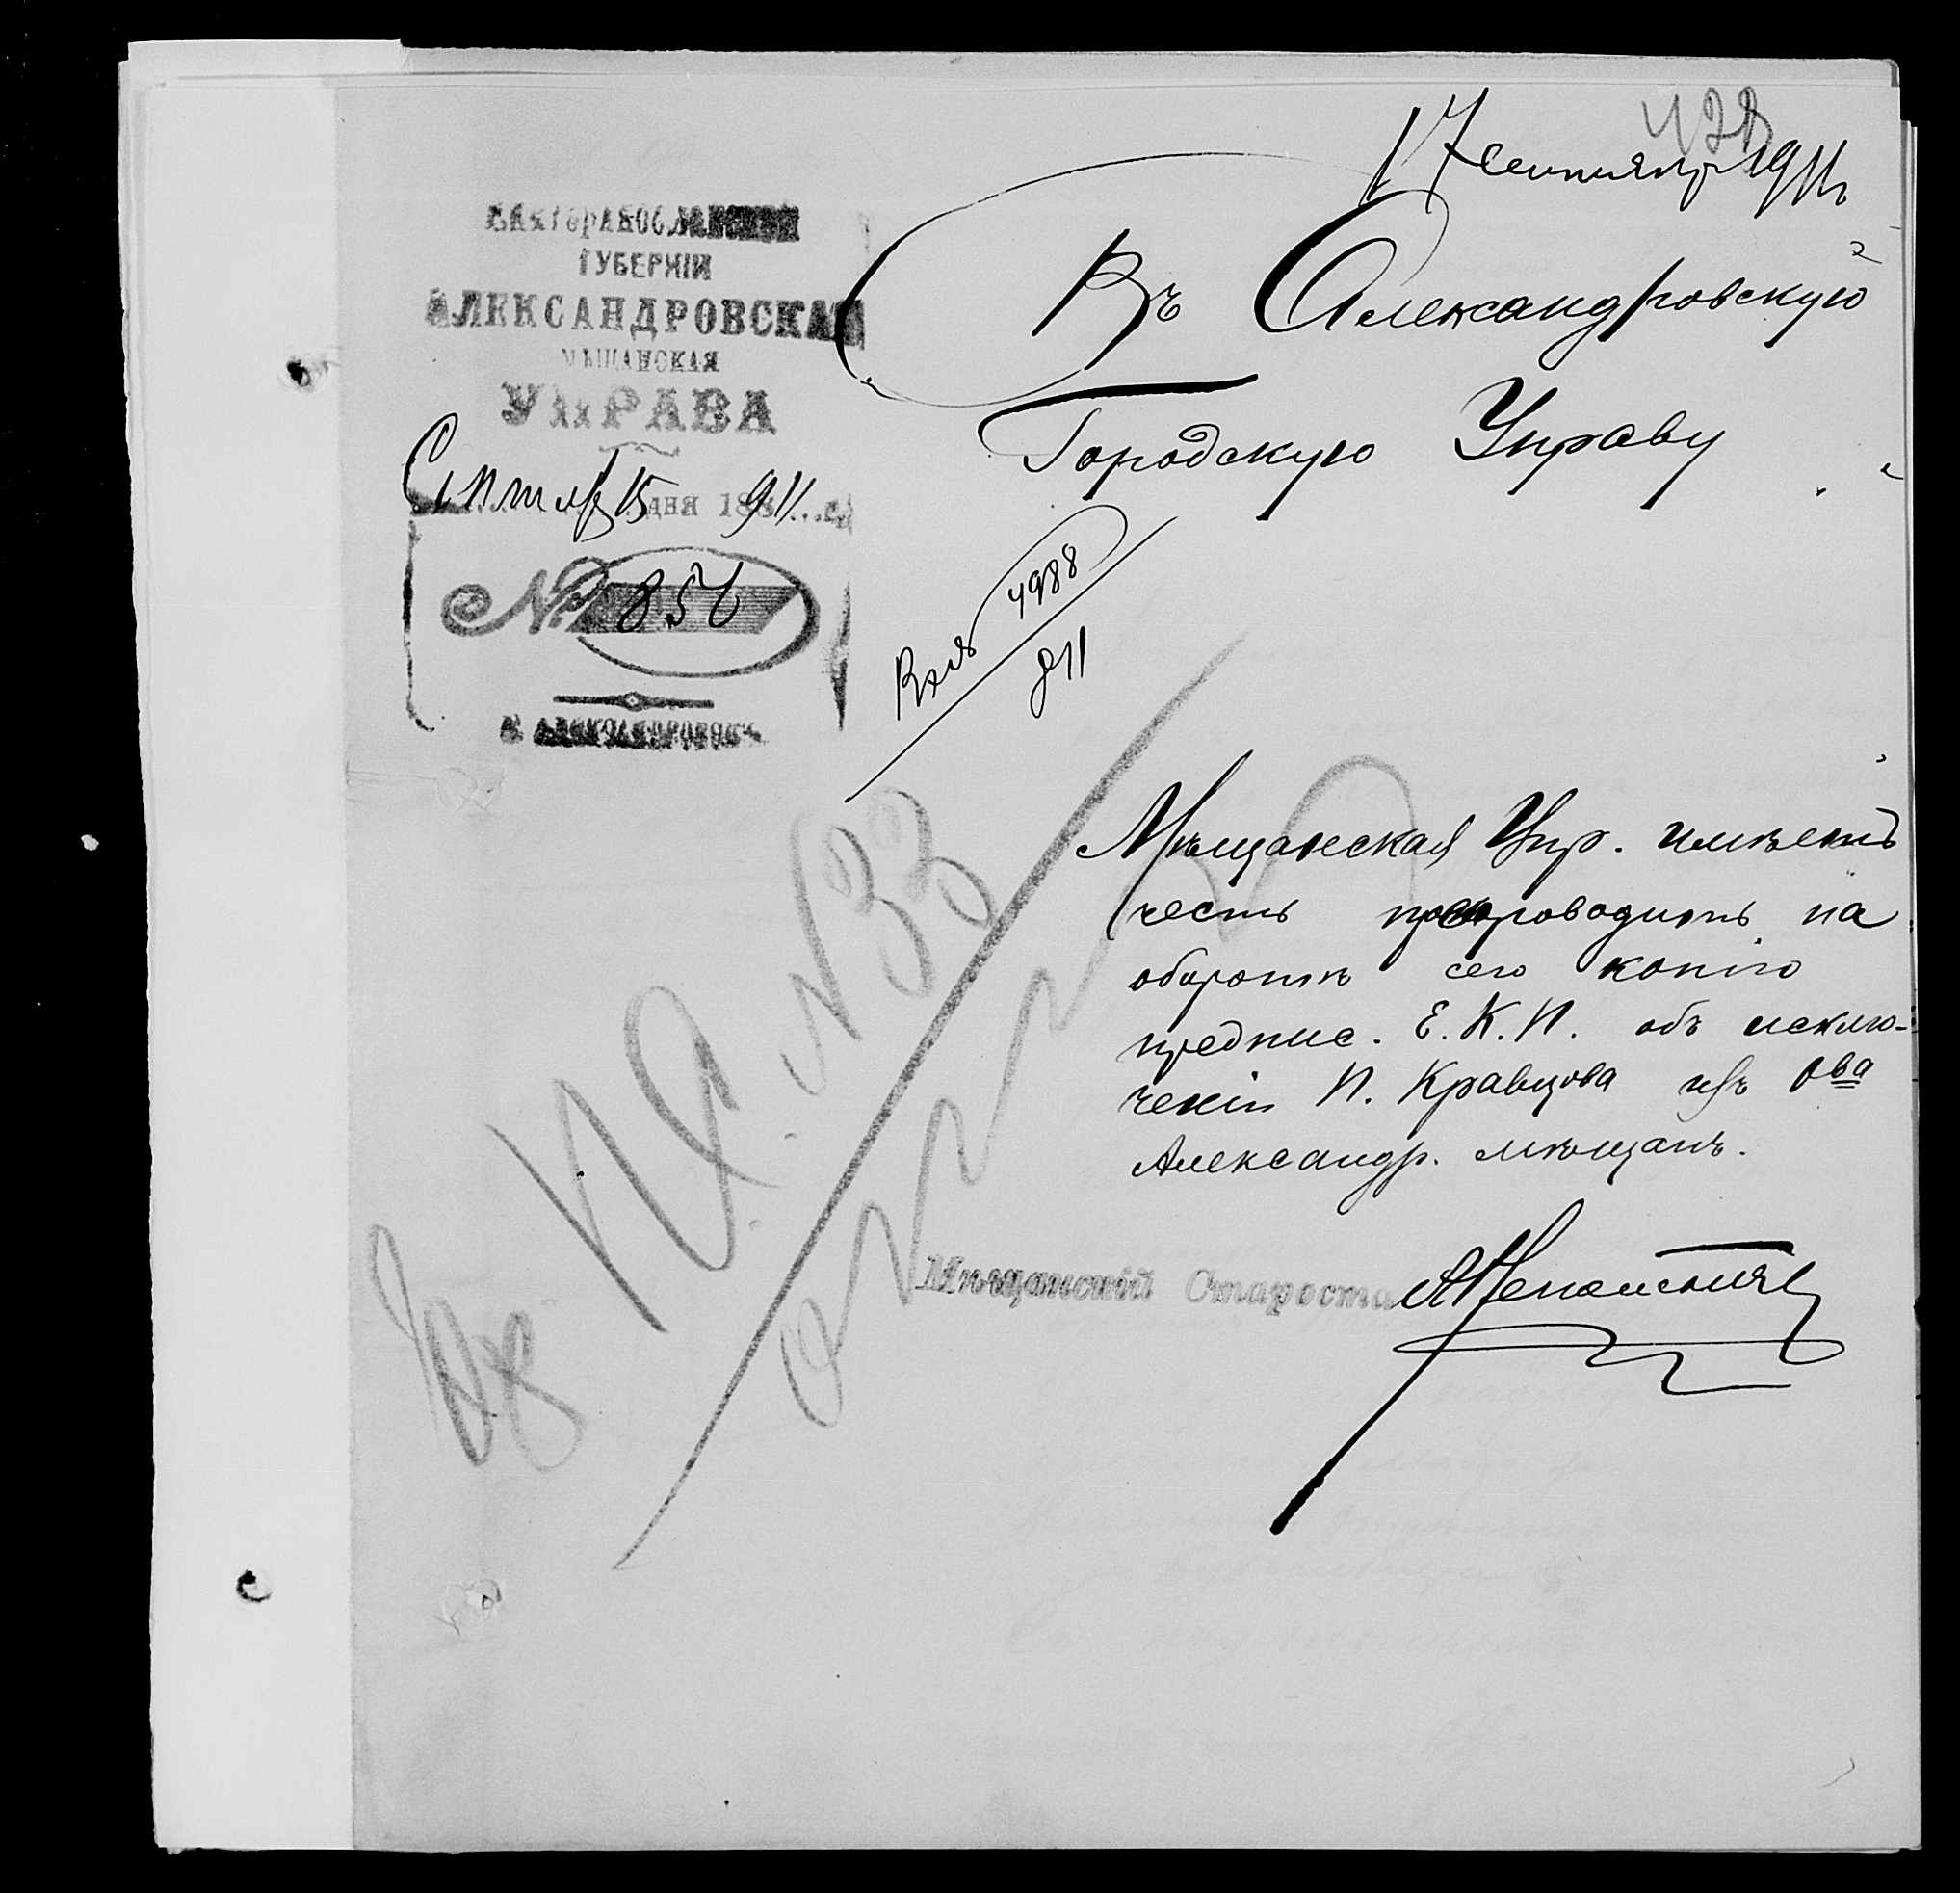 428
17 сентября 1911 г.
ЕКАТЕРИНОСЛАВСКОЙ
ГУБЕРНІИ
АЛЕКСАНДРОВСКАЯ
МѢЩАНСКАЯ
УПРАВА
Сентябр 15 дня 1911 г.
№ 856
г. Александровскъ
Въ Александровскую
Городскую Управу
4988
911
Мѣщанская Упр. имѣетъ
честь препроводить на
оборотѣ сего копію
предпис. Е. К. П. объ исклю-
ченіи П. Кравцова изъ Ова
Александр. мѣщанъ.
Мѣщанскій Староста